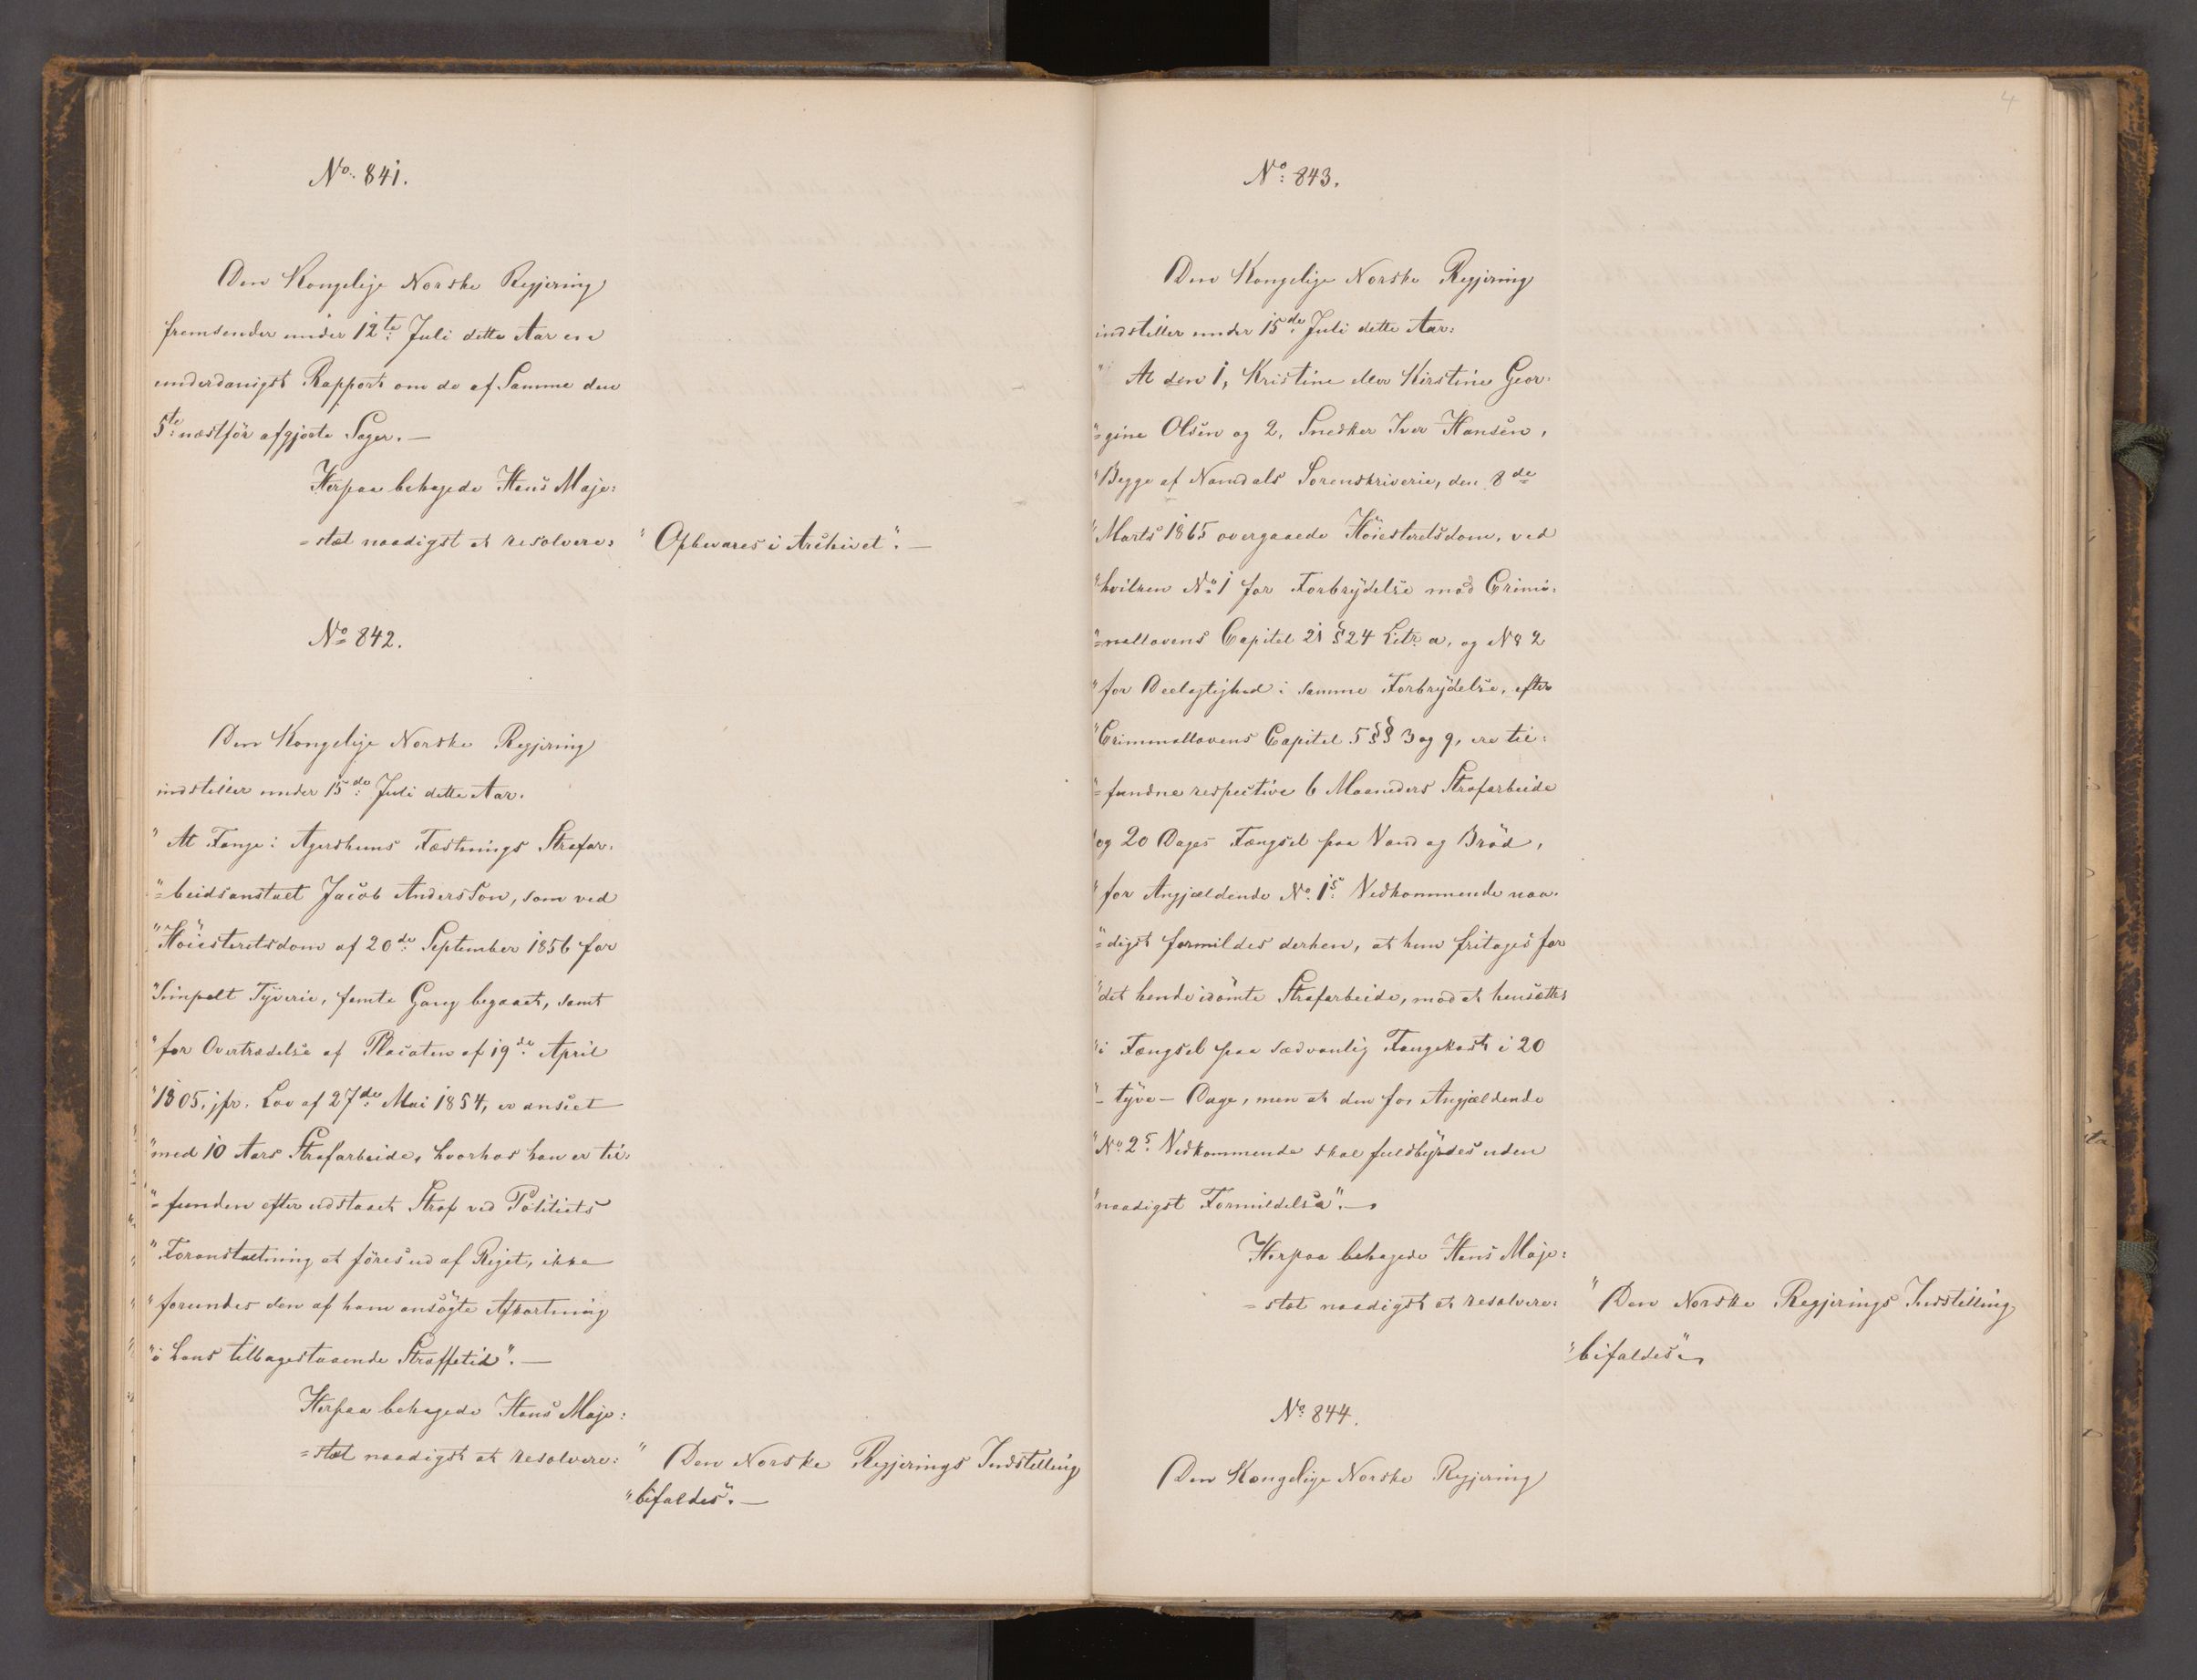 No. 841.
Den Kongelige Norske Regjering
fremsender under 12te Juli dette Aar en
underdanigst Rapport om de af Samme den
5te næstför afgjorte Sager. —
Herpaa behagede Hans Maje:
=stæt naadigst at resolvere: "Opbevares i Archivet". —
No 842.
Den Kongelige Norske Regjering
indstiller under 15de Juli dette Aar.
"At Fange i Agershuus Fæstnings Strafar-
"=beidsanstalt Jacob Andersson, som ved
"Höiesteretsdom af 20de September 1856 for
"Simpelt Tyverie, femte Gang begaaet, samt
"for Overtrædelse af Placaten af 19de April
"1805, jfr. Lov af 27de Mai 1854, er anseet
"med 10 Aars Strafarbeide, hvorhos han er til-
"=funden efter udstaaet Straf ved Politiets
"Foranstaltning at föres ud af Riget, ikke
"forundes den af ham ansögte Afkortning
"i hans tilbagestaaende Straffetid". —
Herpaa behagede Hans Maje:
=stæt naadigst at resolvere: "Den Norske Regjerings Indstilling
"bifaldes". —
4
No: 843.
Den Kongelige Norske Regjering
indstiller under 15de Juli dette Aar:
"At den 1, Kristine eller Kirstine Geor-
"=gine Olsen og 2, Snedker Iver Hansen,
"Begge af Namdals Sorenskriverie, den 8de
"Marts 1865 overgaaede Höiesteretsdom, ved
"hvilken No 1 for Forbrydelse mod Crimi-
"=nallovens Capitel 21 § 24 Litr. a, og No 2
"for Deelagtighed i samme Forbrydelse, efter
"Criminallovens Capitel 5 §§ 3 og 9, ere til:
"=fundne respective 6 Maaneders Strafarbeide
"og 20 Dages Fængsel paa Vand og Bröd,
"for Angjældende No. 1s Vedkommende naa-
"=digst formildes derhen, at hun fritages for
"det hende idömte Strafarbeide, mod at hensættes
"i Fængsel paa sædvanlig Fangekost i 20
"- tyve - Dage, men at den for Angjældende
"No. 2s Vedkommende skal fuldbyrdes uden
"naadigst Formildelse". —
Herpaa behagede Hans Maje:
=stæt naadigst at resolvere: "Den Norske Regjerings Indstilling
"bifaldes". —
No 844.
Den Kongelige Norske Regjering